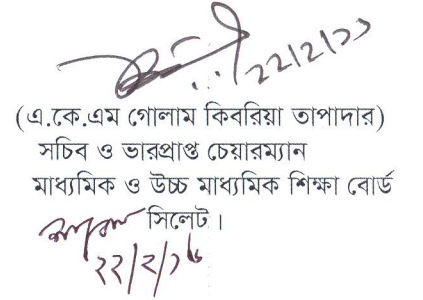 ২২/২/১১
(এ.কে.এম গোলাম কিবরিয়া তাপাদার)
সচিব ও ভারপ্রাপ্ত চেয়ারম্যান
মাধ্যমিক ও উচ্চ মাধ্যমিক শিক্ষা বোর্ড
সিলেট।
২২/২/১৬